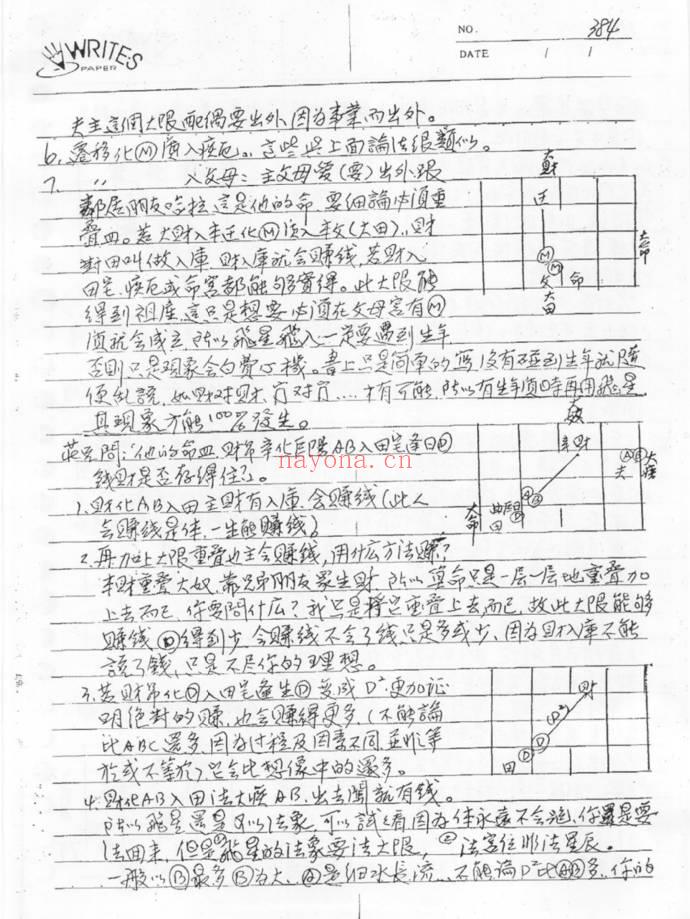 WRITES
PAPER
NO. 384
DATE / /
夫主這個大限配偶要出外,因為事業而出外。
6. 遷移化Ⓜ質入疾厄。。這些與上面論法很類似。
7. 〃 入父母:主父母愛(要)出外,跟
鄰居朋友哈拉,這是他的命,要細論必須重
疊皿。若大財入本迁化Ⓜ質入本父(大田),財
對田叫做入庫,財入庫就会賺錢,若財入
田宅、疾厄或命宮都能夠賺得。此大限能
得到祖產,這只是想要,必須在父母宮有Ⓜ
質就会成立,所以飛星飛入一定要遇到生年
否則只是現象会白費心機。書上只是簡單的寫,沒有碰到生年就隨
便亂說,如財对財,官对官....才有可能,所以有生年質時再用飛星,
其現象方能100%發生。
問:他的命皿,財帛辛化巨陽AB入田宅逢自Ⓓ
錢財是否存得住?
1. 財化AB入田主財有入庫,会賺錢(此人
会賺錢是体,一生能賺錢)
2. 再加上大限重疊也主会賺錢,用什広方法賺?
本財重疊大奴,靠兄弟朋友眾生財,所以算命只是一层一层地重疊加
上去而已,你要問什広?我只是將宮重疊上去而已,故此大限能夠
賺錢,Ⓓ得到少,会賺錢不会了錢,只是多或少,因為財入庫不能
說了錢,只是不尽你的理想。
3. 若財帛化Ⓓ入田宅逢生Ⓓ变成D²,更加証
明絕對的賺,也会賺得更多,(不能論
比ABC還多,因為过程及因素不同,並非等
於或不等於)只会比想像中的還多。
4. 財化AB入田法大疾AB,出去闖就有錢。
所以飛星還是可以法象,可以試看看,因為体永遠不会跑,你還是要
法回來,但是飛星的法象要法大限,法宮位非法星辰。
一般以Ⓑ最多,Ⓑ為大,Ⓐ是細水長流...不能論D²比ⒶⒷ多,你的
大財
迁
Ⓜ
Ⓜ
父
命
大田
大命
大奴
辛財
夫
ⒶⒷ
大疾
大命
田
Ⓓ
財
(D²)
Ⓓ
Ⓓ
田
nayona.cn